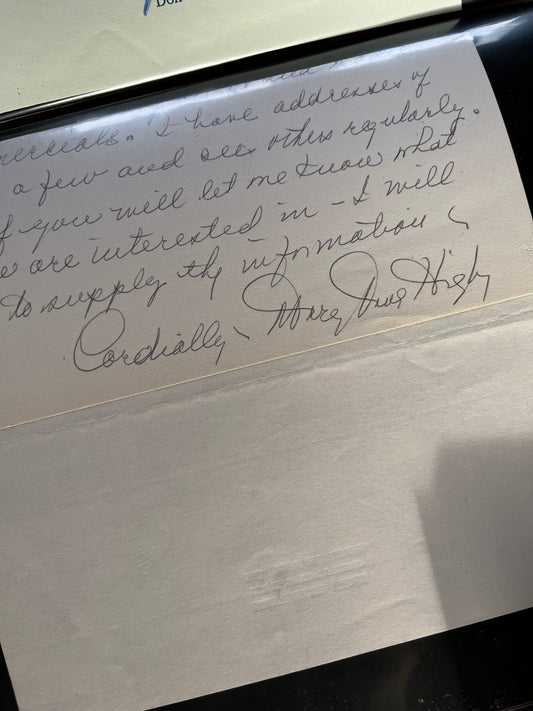 Don
and
mercials. I have addresses of
a few and see others regularly.
f you will let me know what
e are interested in - I will
to supply the information
Cordially, Mary Jane Higby